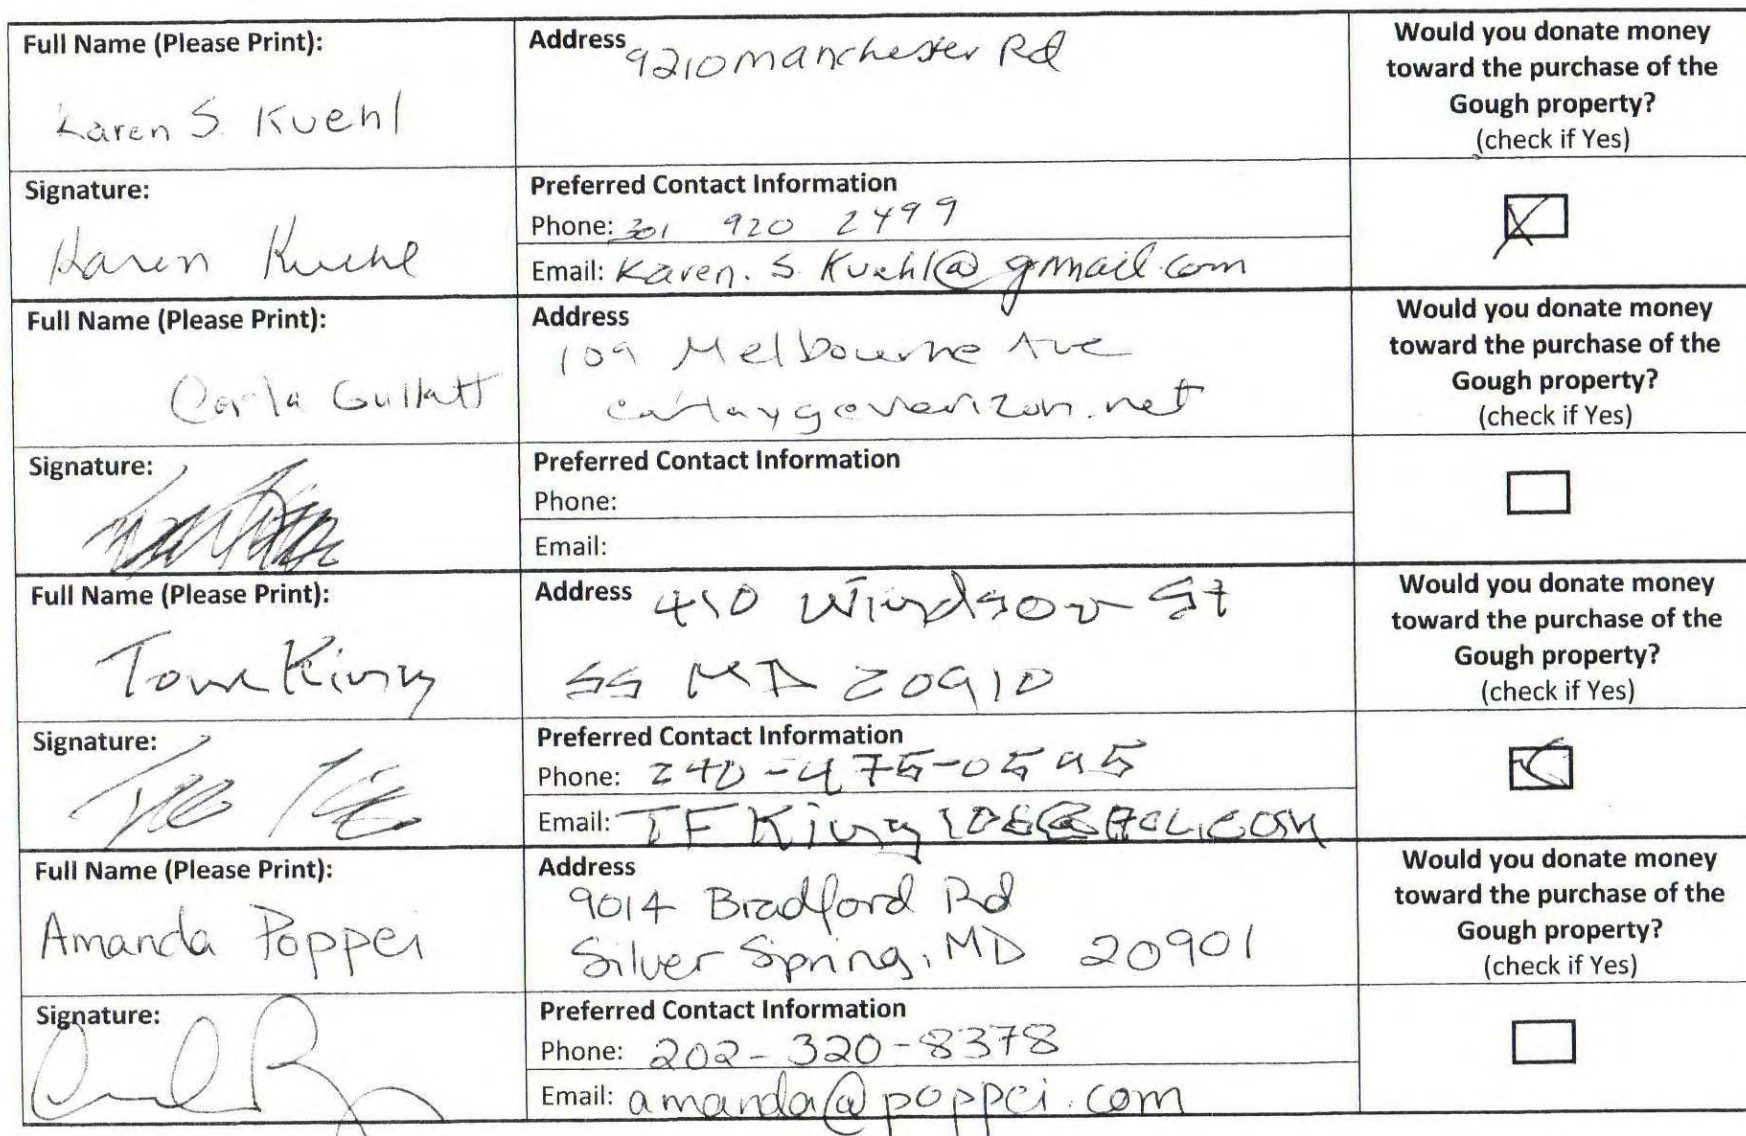 Full Name (Please Print):
Karen S. Kuehl
Address 9210 Manchester Rd
Would you donate money
toward the purchase of the
Gough property?
(check if Yes)
Signature:
Karen Kuehl
Preferred Contact Information
Phone: 301 920 2499
Email: Karen.S.Kuehl@gmail.com
Full Name (Please Print):
Carla
Address
109 Melbourne Ave
Would you donate money
toward the purchase of the
Gough property?
(check if Yes)
Signature:
Preferred Contact Information
Phone:
Email:
Full Name (Please Print):
Tom King
Address 410 Windsor St
SS MD 20910
Would you donate money
toward the purchase of the
Gough property?
(check if Yes)
Signature:
Preferred Contact Information
Phone: 240-475-0595
Email:
Full Name (Please Print):
Amanda Poppei
Address
9014 Bradford Rd
Silver Spring, MD 20901
Would you donate money
toward the purchase of the
Gough property?
(check if Yes)
Signature:
Preferred Contact Information
Phone: 202-320-8378
Email: amanda@poppei.com